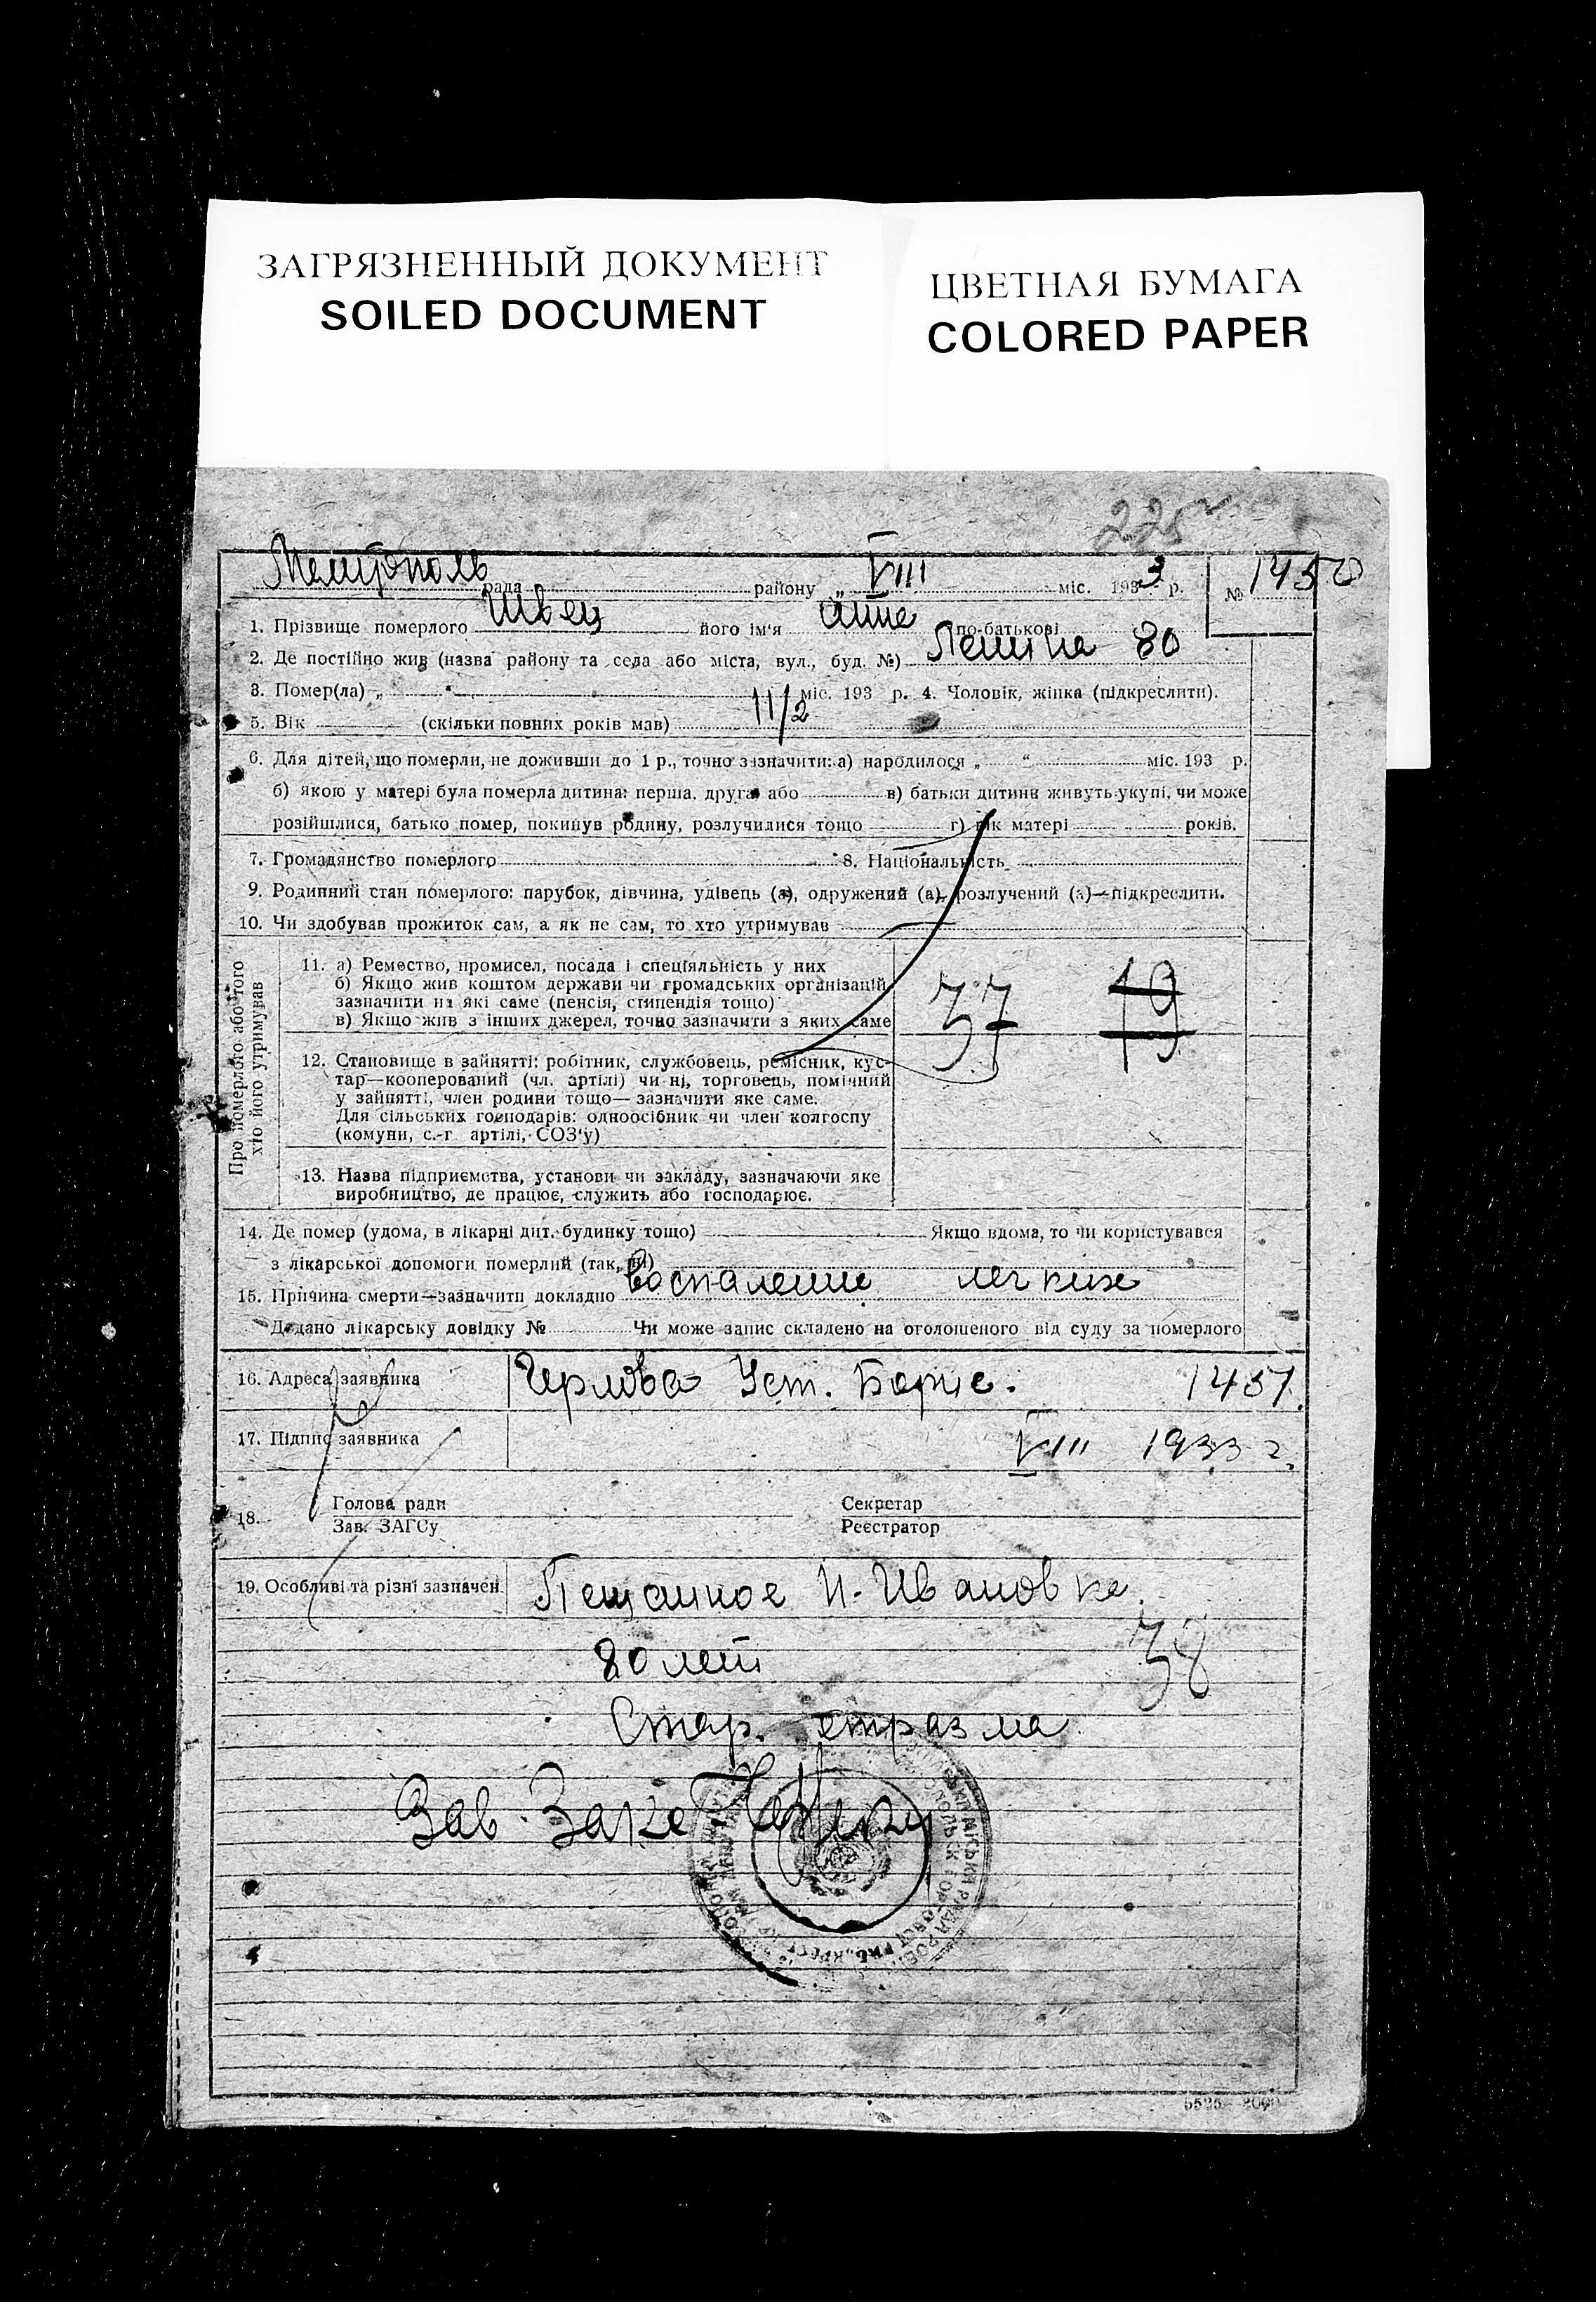 ЗАГРЯЗНЕННЫЙ ДОКУМЕНТ
SOILED DOCUMENT
ЦВЕТНАЯ БУМАГА
COLORED PAPER
225
Мелитополь рада району „ VIII міс. 1933 р. № 1450
1. Прізвище померлого Швец його ім'я Анна по-батькові
2. Де постійно жив (назва району та села або міста, вул., буд. №) Ленина 80
3. Помер(ла) „ “ міс. 193 р. 4. Чоловік, жінка (підкреслити).
5. Вік (скільки повних років мав) 1 1/2
6. Для дітей, що померли, не доживши до 1 р., точно зазначити: а) народилося „ “ міс. 193 р.
б) якою у матері була померла дитина: перша, друга або в) батьки дитини живуть укупі, чи може
розійшлися, батько помер, покинув родину, розлучилися тощо г) вік матері років.
7. Громадянство померлого 8. Національність
9. Родинний стан померлого: парубок, дівчина, удівець (а), одружений (а), розлучений (а)—підкреслити.
10. Чи здобував прожиток сам, а як не сам, то хто утримував
Про померлого або того хто його утримував
11. а) Ремество, промисел, посада і спеціяльність у них
б) Якщо жив коштом держави чи громадських організацій
зазначити на які саме (пенсія, стипендія тощо)
в) Якщо жив з інших джерел, точно зазначити з яких саме
37 19
12. Становище в зайнятті: робітник, службовець, ремісник, кус-
тар—кооперований (чл. артілі) чи ні, торговець, помічний
у зайнятті, член родини тощо— зазначити яке саме.
Для сільських господарів: одноосібник чи член колгоспу
(комуни, с.-г артілі, СОЗ'у)
13. Назва підприємства, установи чи закладу, зазначаючи яке
виробництво, де працює, служить або господарює.
14. Де помер (удома, в лікарні дит. будинку тощо) Якщо вдома, то чи користувався
з лікарської допомоги померлий (так, ні)
15. Причина смерти—зазначити докладно воспаление легких
Додано лікарську довідку № Чи може запис складено на оголошеного від суду за померлого
16. Адреса заявника Чернова Уст. Борис. 1451.
17. Підпис заявника VIII 1933 г.
18. Голова ради Секретар
Зав. ЗАГСу Реєстратор
19. Особливі та різні зазначен. Песчаное Н-Ивановка.
80 лет 38
Стар. маразма
Зав. Загс
5525—2000